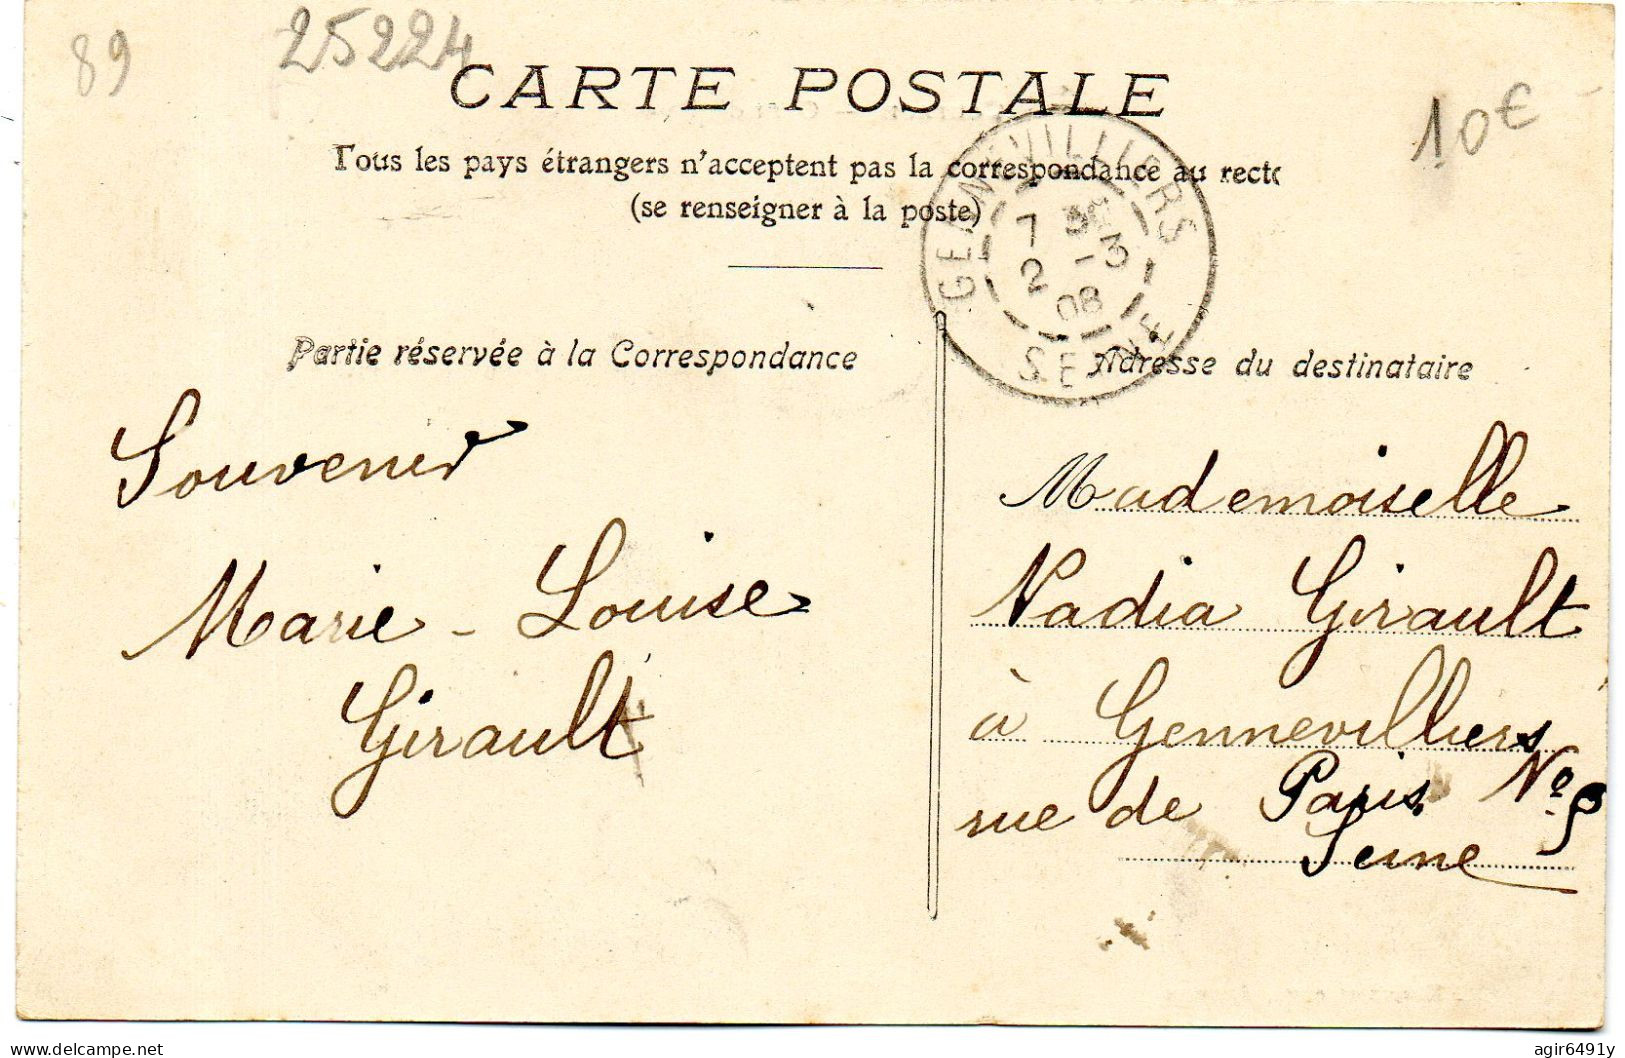 89
25224
10€
CARTE POSTALE
Tous les pays étrangers n'acceptent pas la correspondance au recto
(se renseigner à la poste)
GENNEVILLIERS
7 3E
2 -3
08
SEINE
Partie réservée à la Correspondance
Souvenir
Marie-Louise
Girault
Adresse du destinataire
Mademoiselle
Nadia Girault
à Gennevilliers
rue de Paris No
Seine
delcampe.net
agir6491y